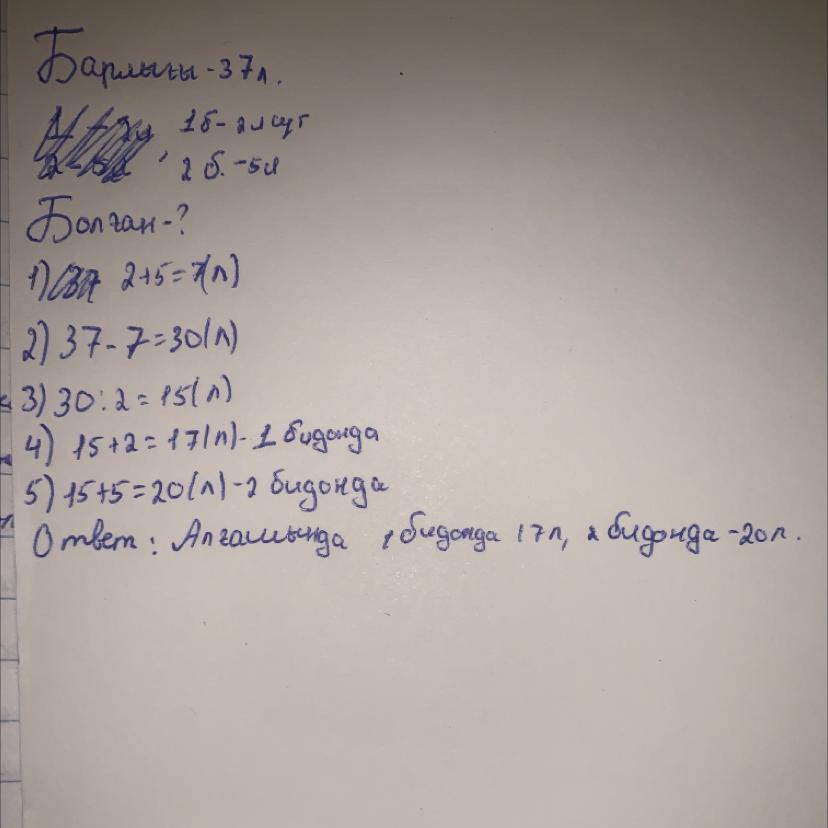 Барлығы - 37л.
1б - 2л сүт
2 б. - 5л
Болған - ?
1) 2+5=7(л)
2) 37-7=30(л)
3) 30:2=15(л)
4) 15+2=17(л) - 1 бидонда
5) 15+5=20(л) - 2 бидонда
Ответ: Алғашында 1 бидонда 17л, 2 бидонда - 20л.